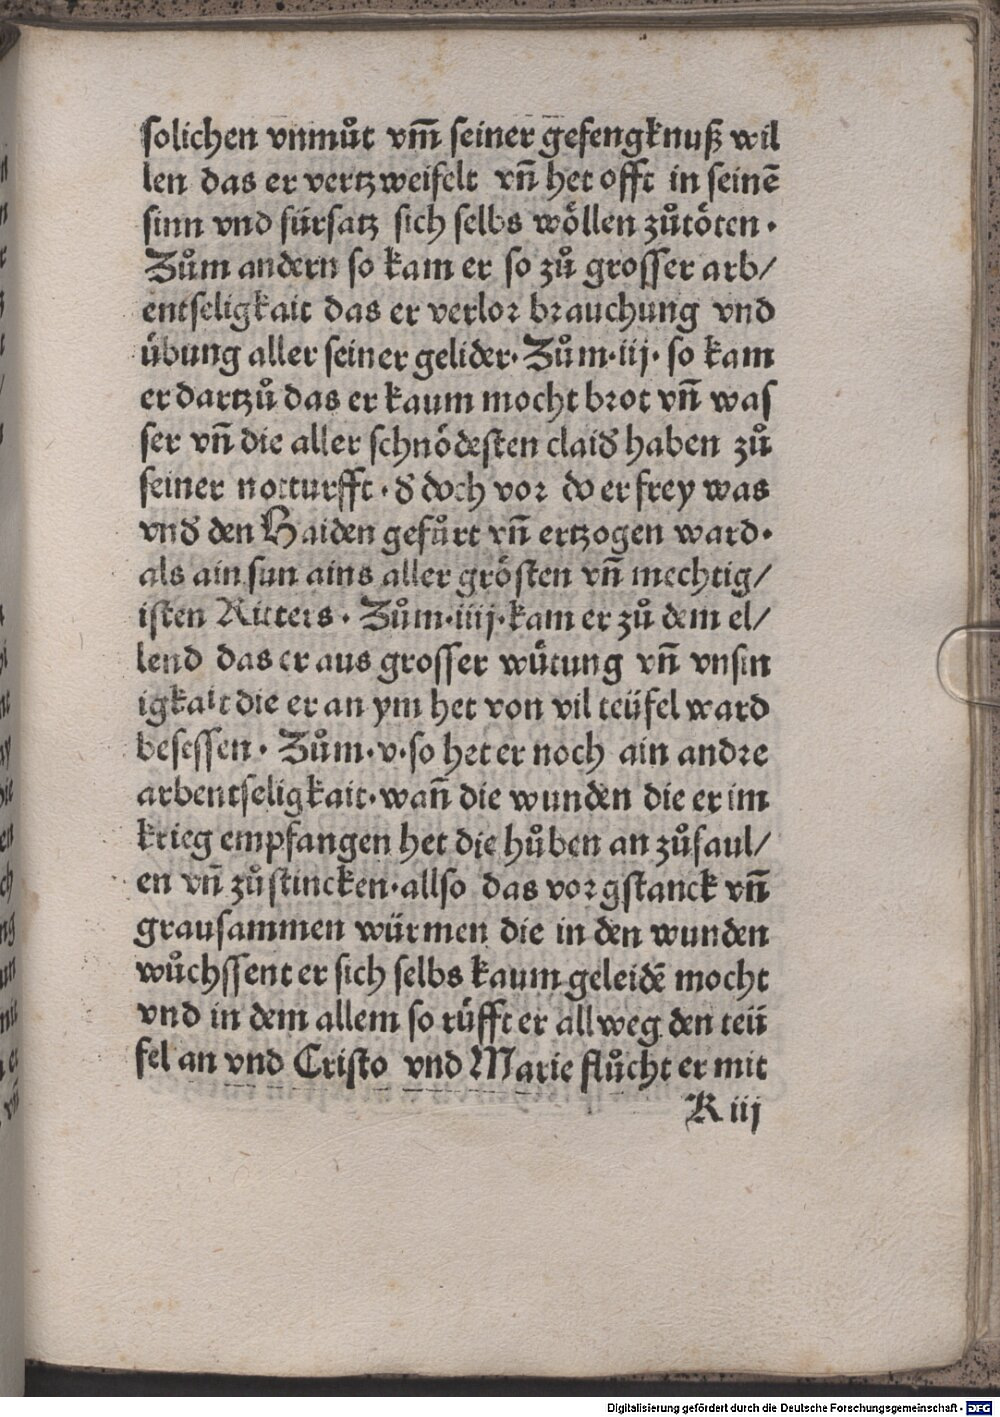 solichen vnmůt vm̄ seiner gefengknuß wil
len das er vertzweifelt vn̄ het offt in seinē
sinn vnd fürsatz sich selbs wöllen zůtöten .
Zům andern so kam er so zů grosser arb/
entseligkait das er verlor brauchung vnd
übung aller seiner gelider . Zům . iij . so kam
er dartzů das er kaum mocht brot vn̄ was
ser vn̄ die aller schnödesten claid̕ haben zů
seiner notturfft . d̕ doch vor do er frey was
vnd̕ den Haiden gefůrt vn̄ ertzogen ward .
als ain sun ains aller grösten vn̄ mechtig/
isten Ritters . Zům . iiij . kam er zů dem el/
lend das er aus grosser wütung vn̄ vnsin
igkait die er an ym het von vil teüfel ward
besessen . Zům . v . so het er noch ain andre
arbentseligkait . wan̄ die wunden die er im
krieg empfangen het die hůben an zůfaul/
en vn̄ zů stincken . allso das vor gstanck vn̄
grausammen würmen die in den wunden
wůchssent er sich selbs kaum geleidē mocht
vnd in dem allem so rüfft er allweg den teü
fel an vnd Cristo vnd Marie flůcht er mit
K iij
Digitalisierung gefördert durch die Deutsche Forschungsgemeinschaft - DFG